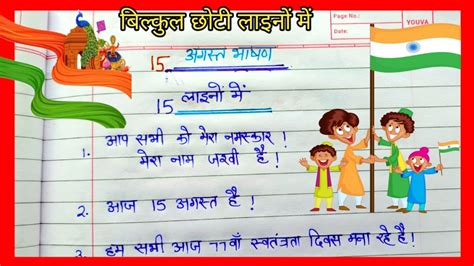 बिल्कुल छोटी लाइनों में
Page No.:
YOUVA
Date:
15 अगस्त भाषण
15 लाइनों में
1. आप सभी को मेरा नमस्कार !
मेरा नाम जस्वी है !
2. आज 15 अगस्त है !
3. हम सभी आज 77वाँ स्वतंत्रता दिवस मना रहे हैं !